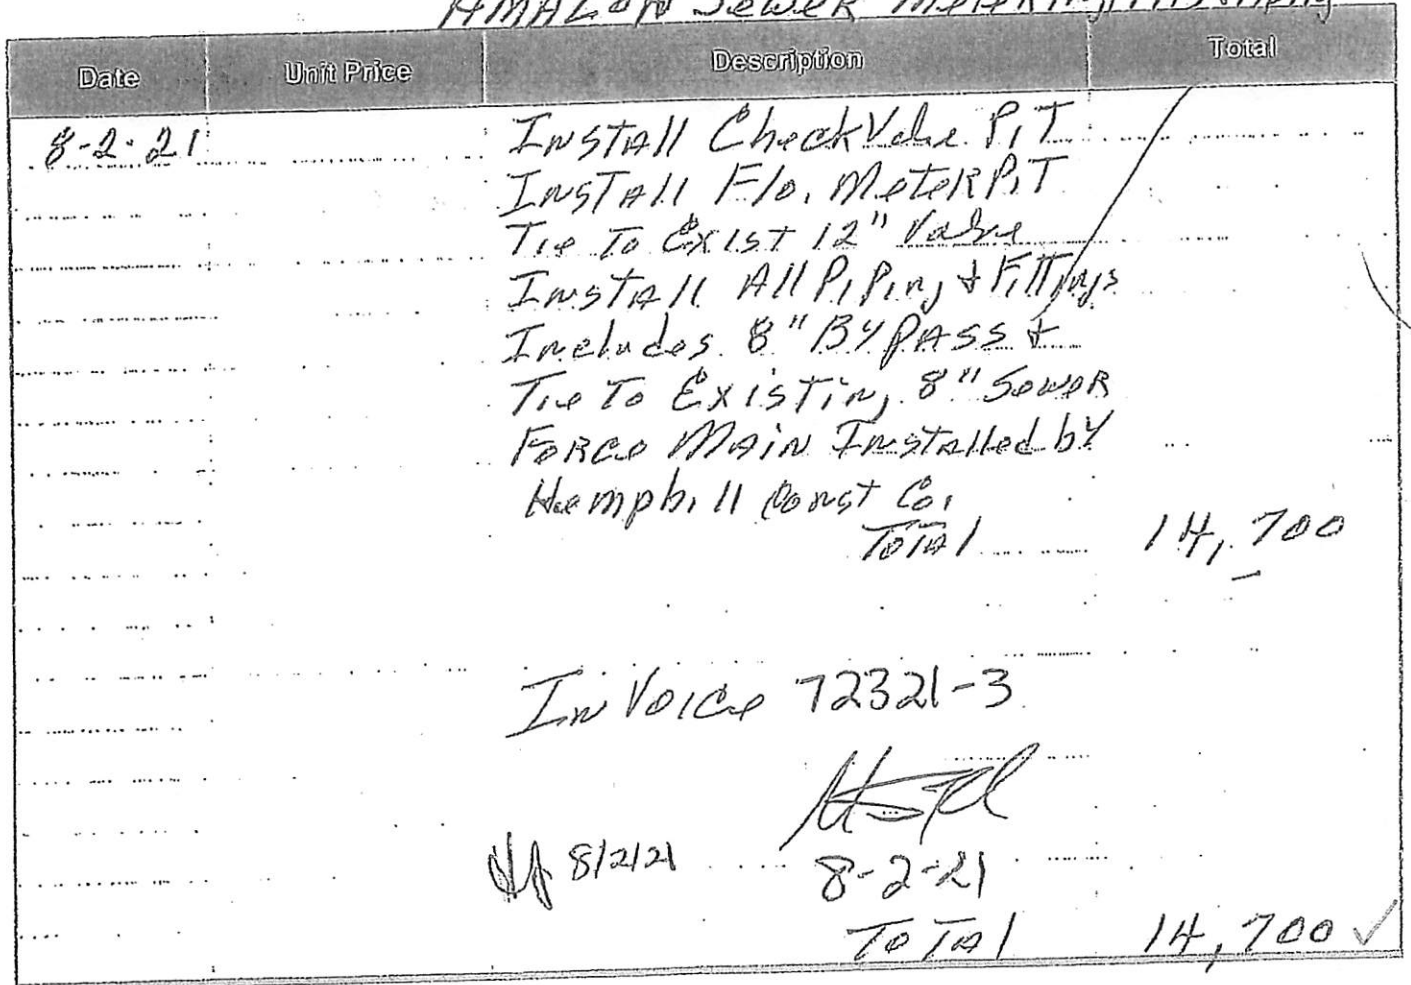 AMAZON Sewer Metering
Date Unit Price Description Total
8-2-21 Install Check Valve PiT
Install Flo. Meter PiT
Tie To Exist 12" Valve
Install All Piping & Fittings
Includes 8" BY PASS &
Tie To Existing 8" Sewer
Force Main Installed by
Hemphill Const Co.
Total 14,700
InVoice 72321-3
8/2/21 8-2-21
Total 14,700 ✓